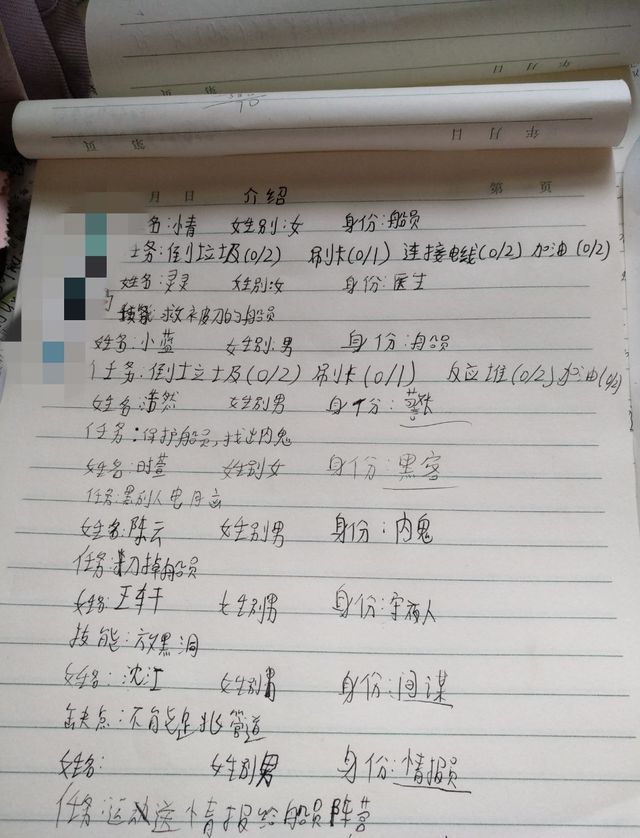 页 第 日 月 年
月 日 介绍 第 页
名:情 女性别:女 身份:船员
任务:倒垃圾(0/2) 刷卡(0/1) 连接电线(0/2) 加油(0/2)
姓名:灵灵 性别:女 身份:医生
技能:救被刀的船员
姓名:小蓝 性别:男 身份:船员
任务:倒垃圾(0/2) 刷卡(0/1) 反应堆(0/2) 加油(0/2)
姓名:浩然 性别男 身份:警长
任务:保护船员,找出内鬼
姓名:时萱 性别女 身份:黑客
任务:黑别人电脑
姓名:陈云 性别男 身份:内鬼
任务:刀掉船员
姓名:王轩 性别男 身份:宇宙人
技能:放黑洞
姓名:沈江 性别男 身份:间谍
缺点:不能走非管道
姓名: 性别男 身份:情报员
任务:运送情报给船员阵营